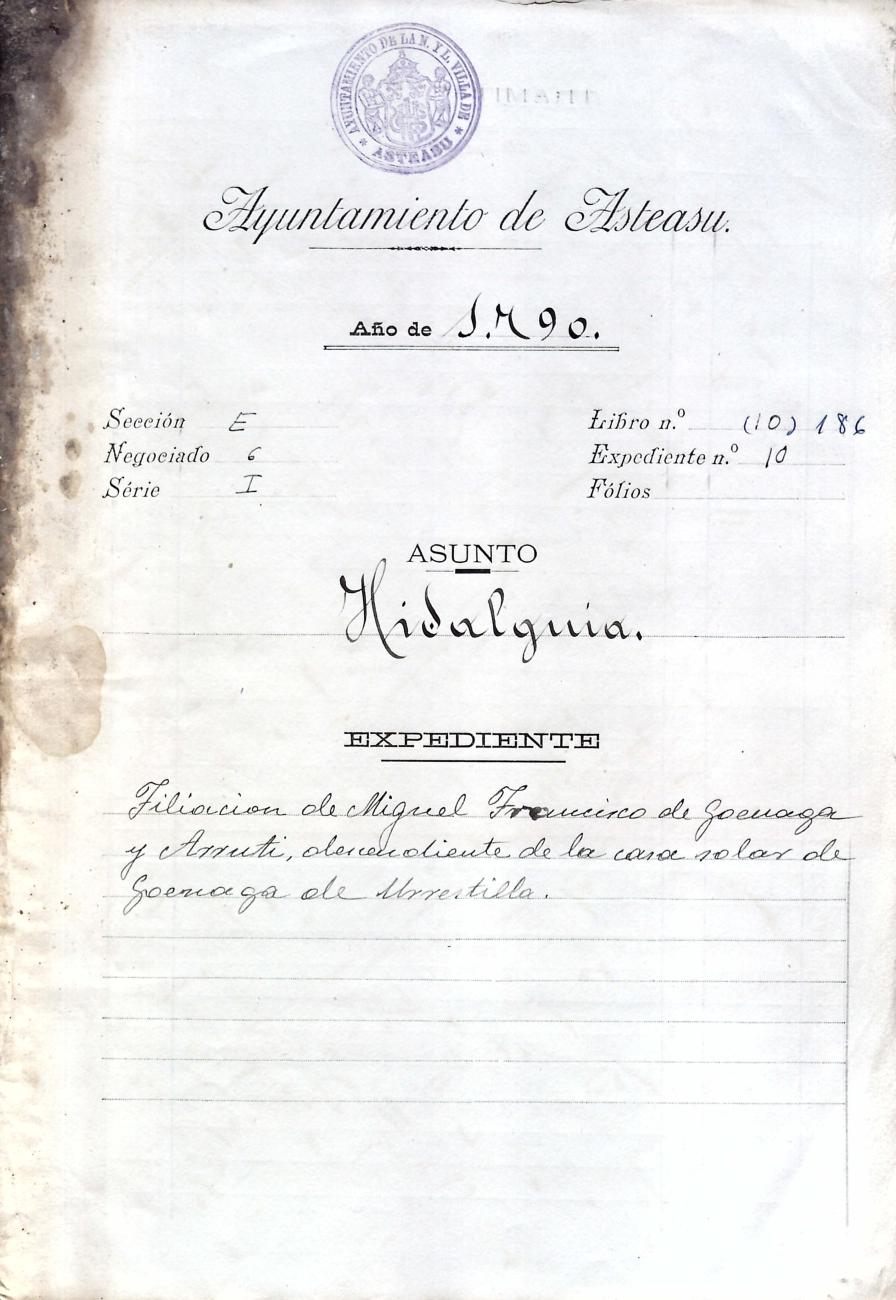 AYUNTAMIENTO DE LA N. Y L. VILLA DE
* ASTEASU *
Ayuntamiento de Asteasu.
Año de 1.790.
Sección E
Libro n.º (10) 186
Negociado 6
Expediente n.º 10
Série I
Fólios
ASUNTO
Hidalguia.
EXPEDIENTE
Filiacion de Miguel Francisco de Goenaga
y Arruti, descendiente de la casa solar de
Goenaga de Urrestilla.